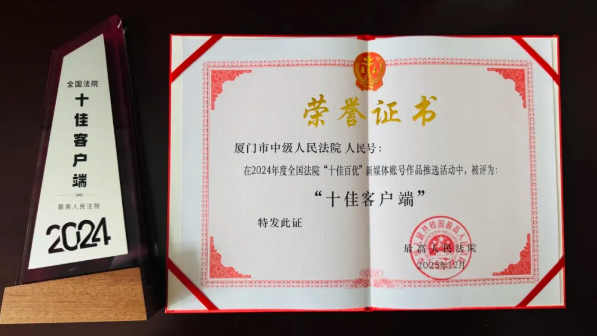 全国法院
十佳客户端
最高人民法院
2024
荣誉证书
厦门市中级人民法院 人民号：
在2024年度全国法院“十佳百优”新媒体账号作品推选活动中，被评为：
“十佳客户端”
特发此证
最高人民法院